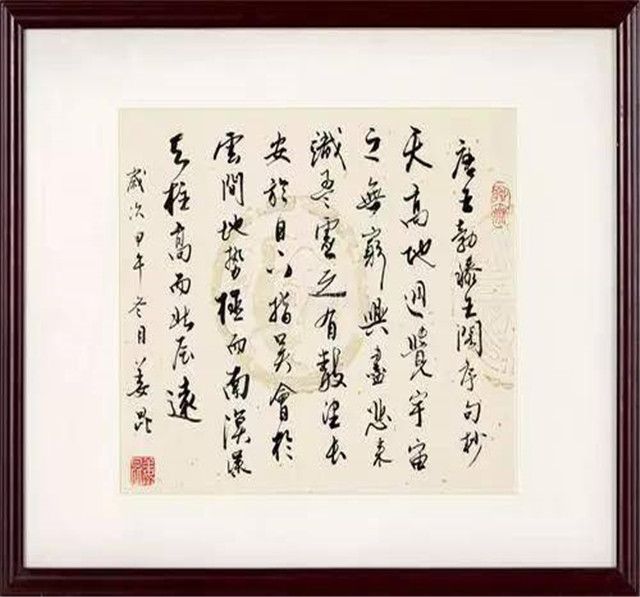 唐王勃滕王閣序句抄
天高地迥覺宇宙
之無窮興盡悲來
識盈虛之有數望長
安於日下指吳會於
雲間地勢極而南溟深
天柱高而北辰遠
歲次甲午冬月姜昆